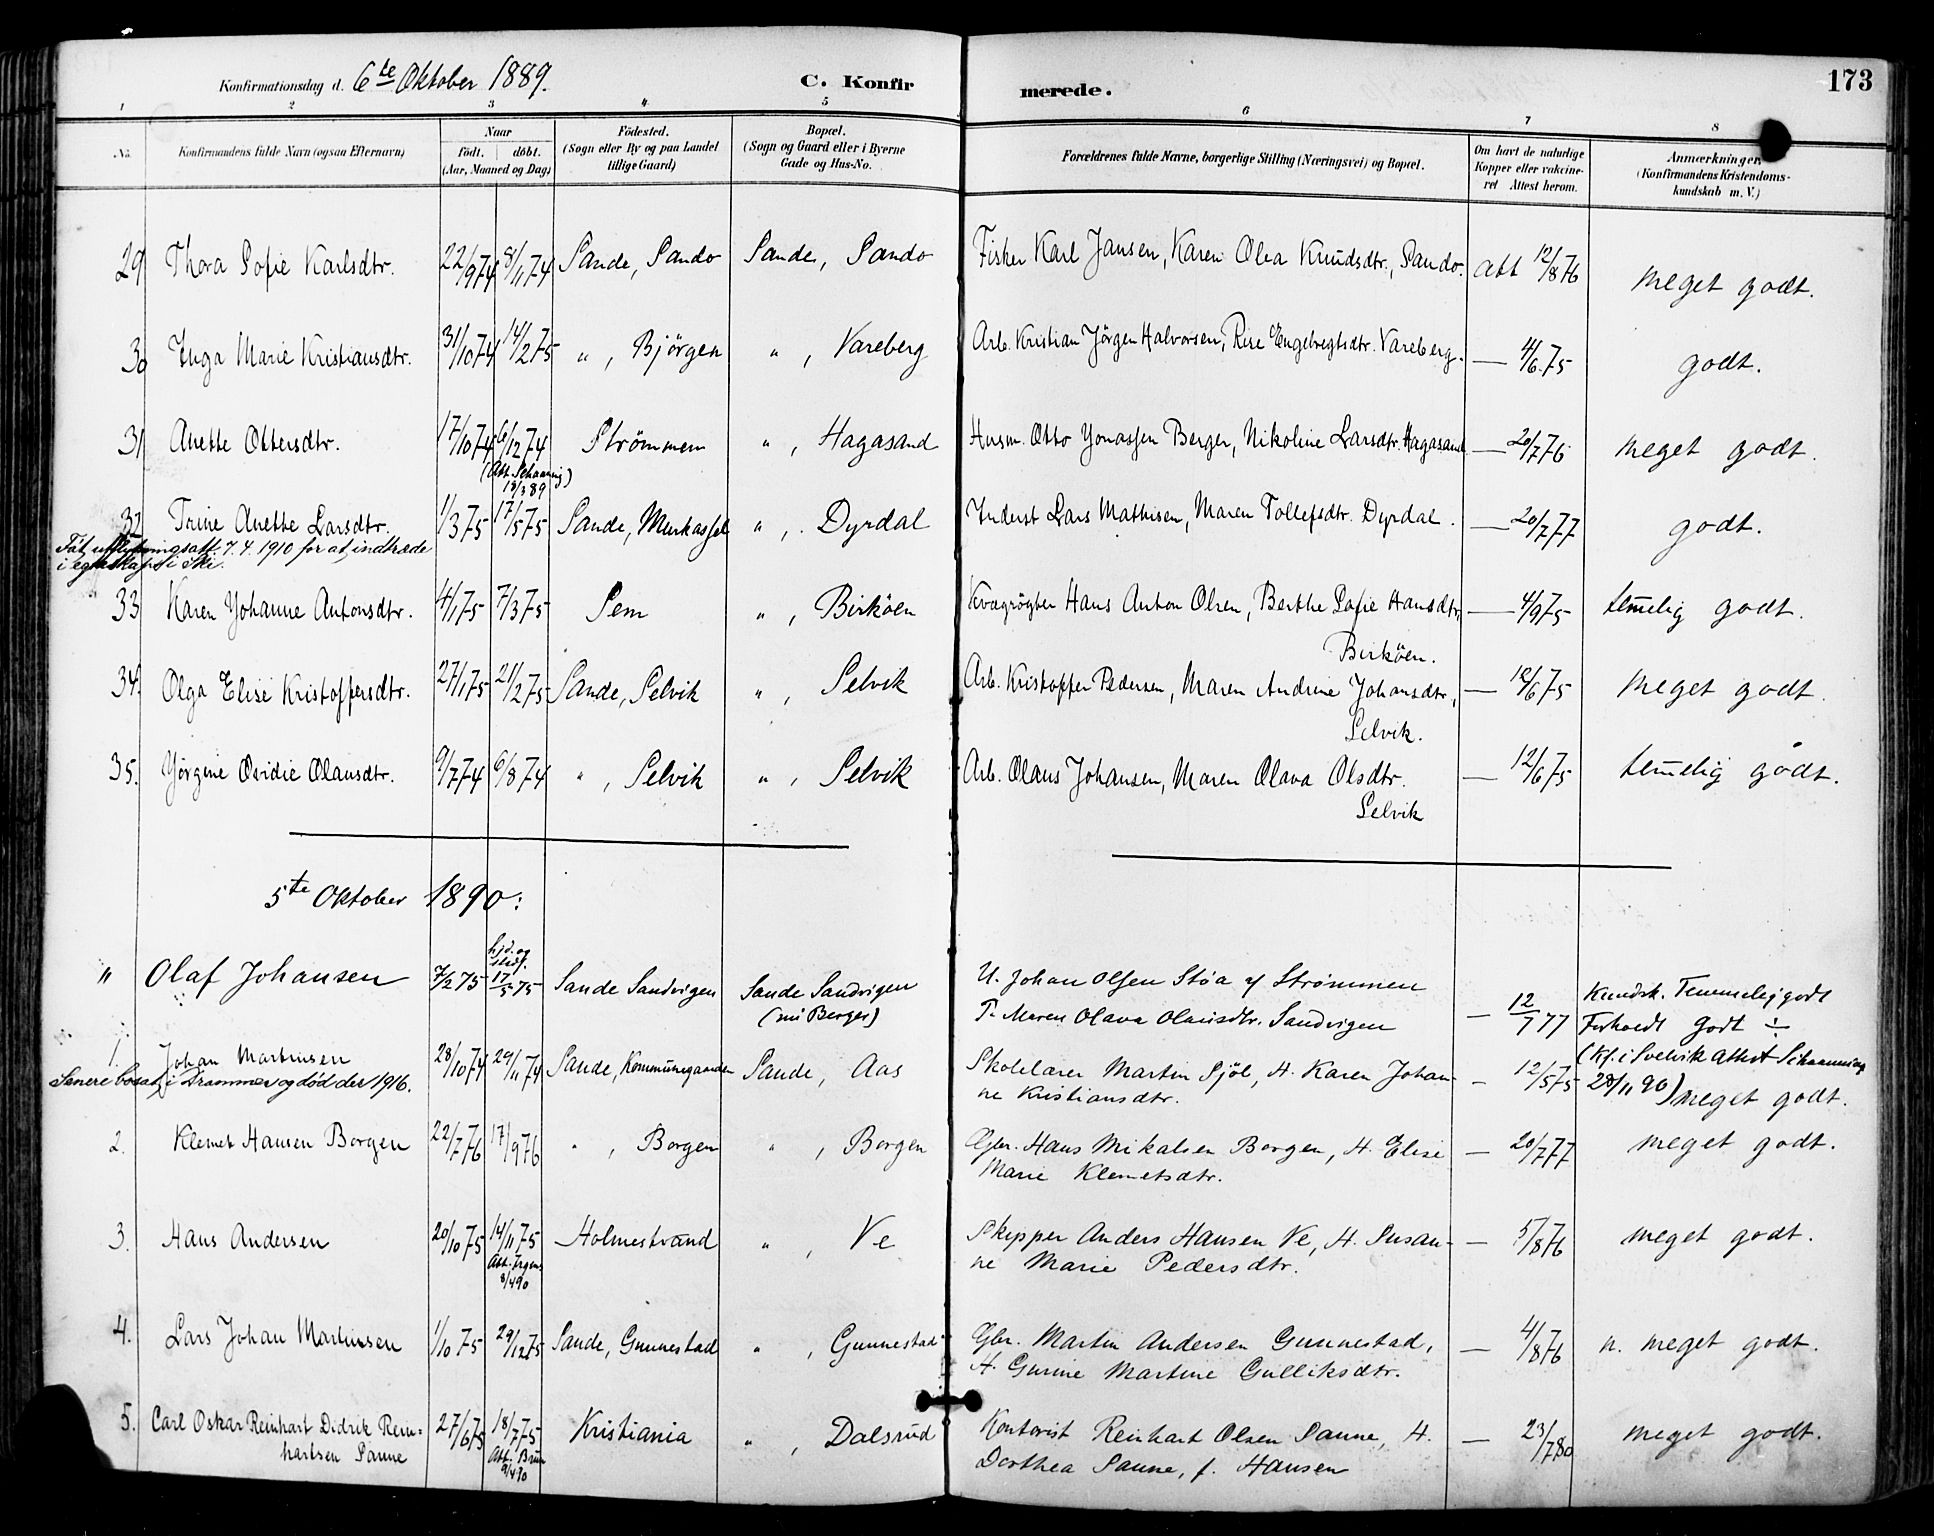 Konfirmationsdag d. 6te Oktober 1889.
C. Konfirmerede.
173
1 2 3 4 5 6 7 8
No. Konfirmandens fulde Navn (ogsaa Efternavn) Naar födt. döbt. (Aar, Maaned og Dag) Födested. (Sogn eller By og paa Landet tillige Gaard) Bopæl. (Sogn og Gaard eller i Byerne Gade og Hus-No. Forældrenes fulde Navne, borgerlige Stilling (Næringsvei) og Bopæl. Om havt de naturlige Kopper eller vakcineret Attest herom. Anmærkninger (Konfirmandens Kristendomskundskab m. V.)
29 Thora Sofie Karlsdtr. 22/9 74 8/11 74 Sande, Sando Sande, Sando Fisker Karl Jansen, Karen Olea Knudsdtr., Sando. att 12/8 76 meget godt.
30 Inga Marie Kristiansdtr. 31/10 74 14/2 75 " , Bjørgen " , Vareberg Arb. Kristian Jörgen Halvorsen, Engebregtsdtr. Vareberg. — 4/6 75 godt.
31 Anette Ottersdtr. 17/10 74 6/12 74 Strömmen " , Hagasand Husm. Otto Jonassen Berger, Nikoline Larsdtr. Hagasand — 20/7 76 meget godt.
(Att. Schaanning
18/3 89)
32 Trine Anette Larsdtr. 1/3 75 17/5 75 Sande, Murkassel " , Dyrdal Inderst Lars Mathisen, Maren Tollefsdtr. Dyrdal. — 20/7 77 godt.
Fåt utflytningsatt. 7.4.1910 for at indtræde
i egteskap i Ski.
33 Karen Johanne Antonsdtr. 4/1 75 7/3 75 Sem " , Birköen Kvægrögter Hans Anton Olsen, Berthe Sofie Hansdtr, — 4/9 75 temelig godt.
Birköen.
34. Olga Elise Kristoffersdtr. 27/1 75 21/2 75 Sande, Selvik " , Selvik Arb. Kristoffer Pedersen, Maren Andrine Johansdtr, — 12/6 75 meget godt.
Selvik.
35. Jörgine Ovidie Olausdtr. 9/7 74 6/8 74 " , Selvik " , Selvik Arb. Olaus Johansen, Maren Olava Olsdtr. — 12/6 75 temelig godt.
Selvik
5te Oktober 1890:
" Olaf Johansen 7/2 75 hjd. og 17/5 75 Sande Sandvigen Sande Sandvigen U. Johan Olsen Støa af Strømmen
(nu Berger) P. Maren Olava Olausdtr. Sandvigen — 12/7 77 Kundsk. Temmelig godt
Forhoedt Godt
(Kf. i Svelvik Attest Schaanning
28/11 90)
1. Johan Martinsen 28/10 74 29/11 74 Sande, Kommunegaarden Sande, Aas Skolelærer Martin Sjöl, H. Karen Johan-
ne Kristiansdtr. — 12/5 75 meget godt.
Senere bosat i Drammen og død der 1916.
2. Klemet Hansen Borgen 22/7 76 17/9 76 " , Borgen " , Borgen Gbr. Hans Mikalsen Borgen, H. Elise
Marie Klemetsdtr. — 20/7 77 meget godt.
3. Hans Andersen 20/10 75 14/11 75 Holmestrand " , Ve Skipper Anders Hansen Ve, H. Susan-
ne Marie Pedersdtr. — 5/8 76 meget godt.
8/4 90
4. Lars Johan Martinsen 1/10 75 29/12 75 Sande, Gunnestad " , Gunnestad Gbr. Martin Andersen Gunnestad,
H. Gurine Martine Gulliksdtr. — 4/8 76 n. meget godt.
5. Carl Oskar Reinhart Didrik Rein-
hartsen Sanne 27/6 75 18/7 75 Kristiania " , Dalsrud Kontorist Reinhart Olsen Sanne, H.
Dorthea Sanne, f. Hansen — 23/7 80 meget godt.
Att. Brun
9/4 90